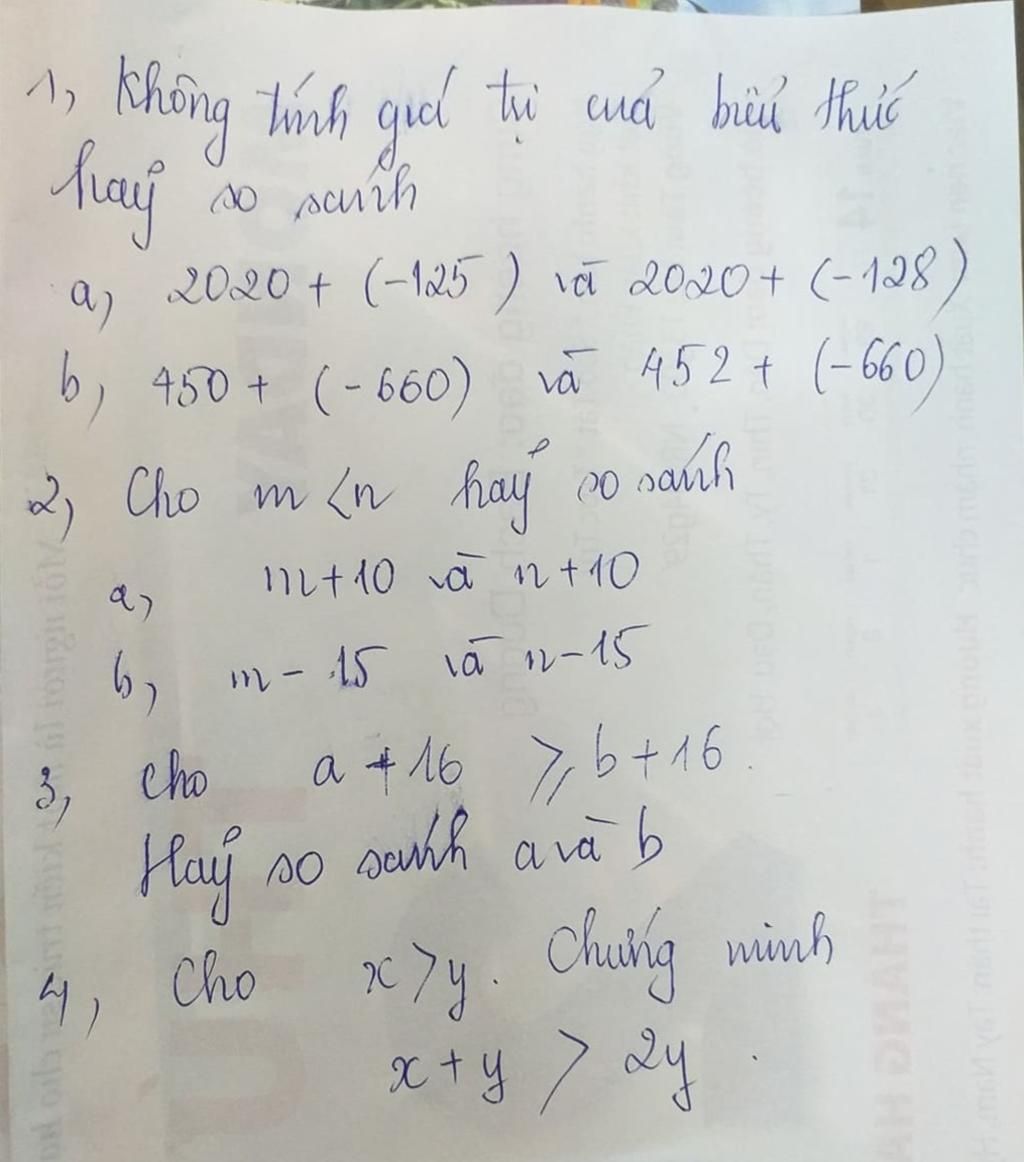 1, Không tính giá trị của biểu thức
hãy so sánh
a, 2020 + (-125) và 2020 + (-128)
b, 450 + (-660) và 452 + (-660)
2, Cho m < n hãy so sánh
a, m+10 và n+10
b, m - 15 và n - 15
3, cho a + 16 ⩾ b + 16.
Hãy so sánh a và b
4, Cho x > y. Chứng minh
x + y > 2y.